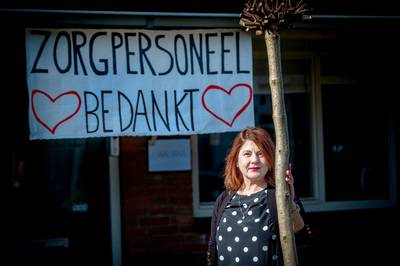 ZORGPERSONEEL
BEDANKT